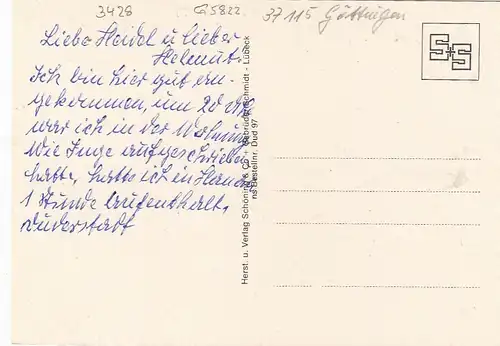 3428
G5822
37 115 Göttingen
Liebe Heidel u lieber
Helmut.
Ich bin hier gut an-
gekommen, um 20 Uhr
war ich in der Wohnung
Wie Inge aufgeschrieben
hatte, hatte ich in
1 Stunde Aufenthalt.
Duderstadt
Herst. u. Verlag Schöning & Co + Gebrüder Schmidt - Lübeck
Bestellnr. Dud 97
S+S